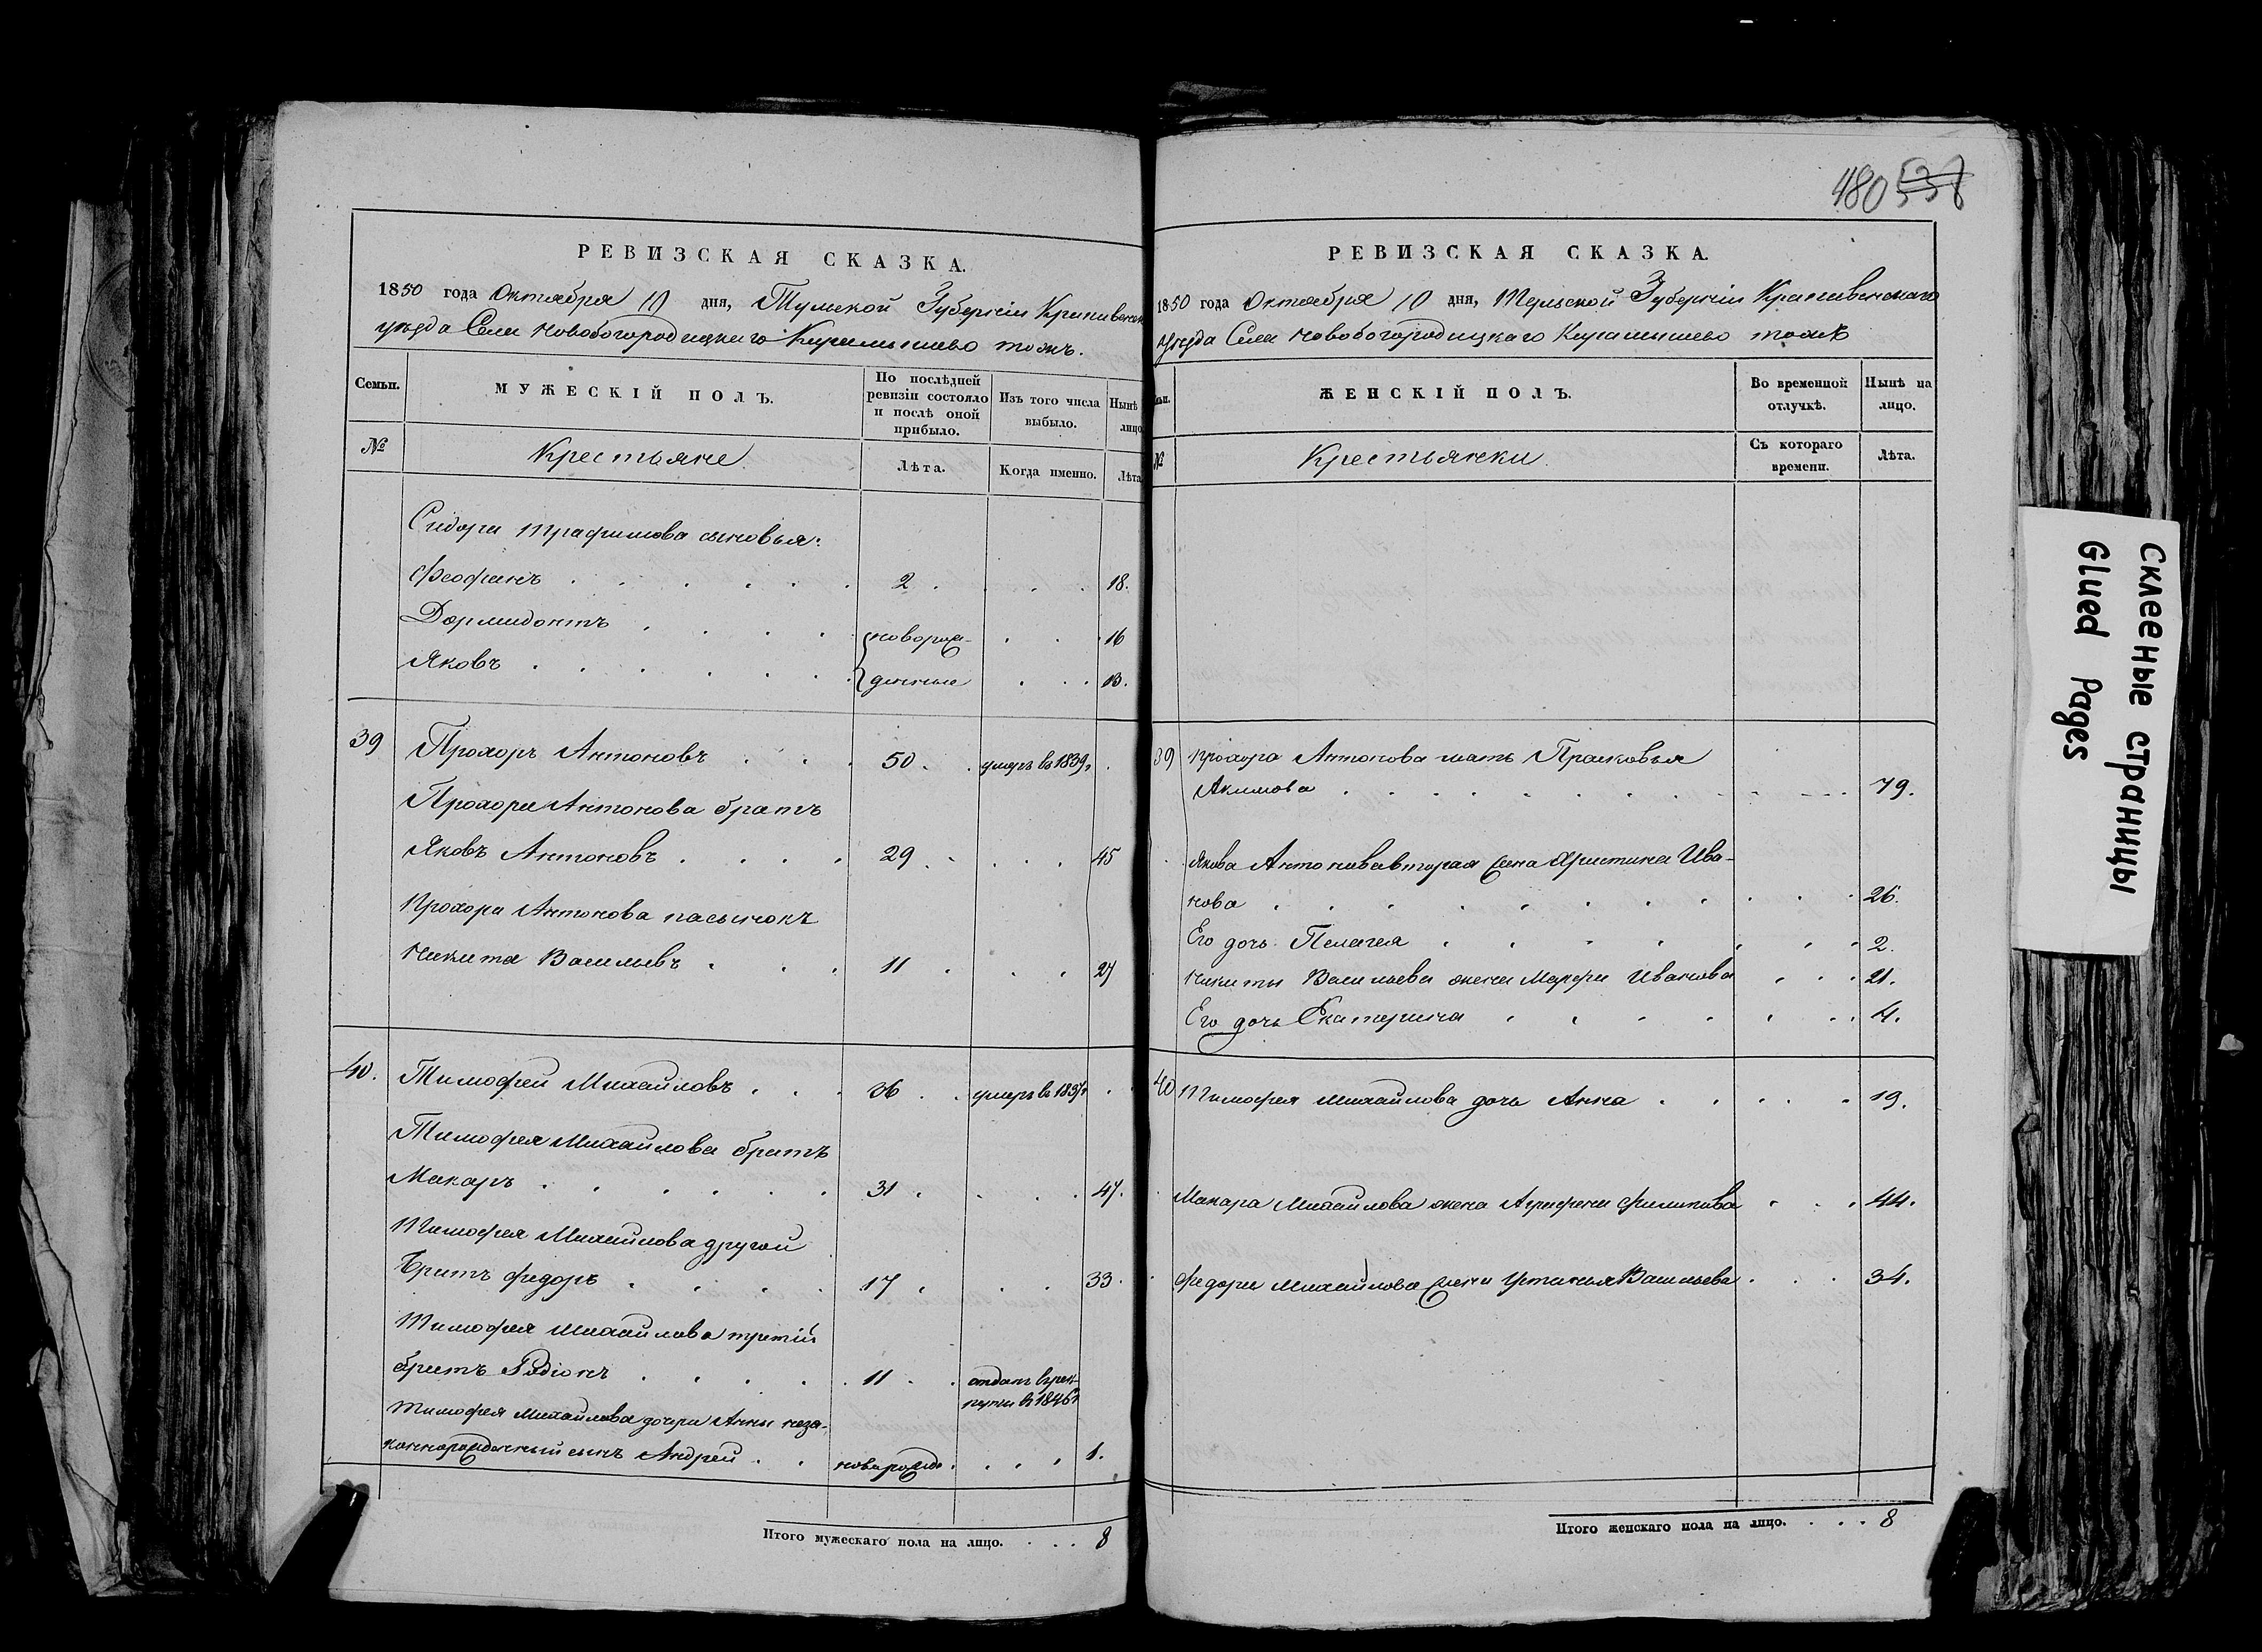 480 538
РЕВИЗСКАЯ СКАЗКА.
1850 года Октября 10 дня, Тульской Губерніи Крапивенск
уезда Села Новобогородицкаго Кугамышево тожъ.
Семьи. МУЖЕСКІЙ ПОЛЪ. По послѣдней ревизіи состояло и послѣ оной прибыло. Изъ того числа выбыло. Нынѣ лицо
№ Крестьяне. Лѣта. Когда именно. Лѣта
Сидора Трафимова сыновья:
Феофанъ 2 18.
Дормидонтъ новорож- 16
Яковъ денные 13.
39 Прохоръ Антоновъ 50 умеръ въ 1839
Прохора Антонова братъ
Яковъ Антоновъ 29 45
Прохора Антонова пасынокъ
Никита Васильевъ 11 27
40. Тимофей Михайловъ 36 умеръ въ
Тимофея Михайлова братъ
Макаръ 31 47.
Тимофея Михайлова другой
братъ Федоръ 17 33
Тимофея Михайлова третій
братъ Родіонъ 11 отданъ въ рек-
руты въ 1846
Тимофея Михайлова дочери Анны неза-
коннорожденный сынъ Андрей новорожд 1.
Итого мужескаго пола на лицо. 8
РЕВИЗСКАЯ СКАЗКА.
1850 года Октября 10 дня, Тульской Губерніи Крапивенскаго
уезда Села Новобогородицкаго Кугамышево тожъ
ьи. ЖЕНСКІЙ ПОЛЪ. Во временной отлучкѣ. Нынѣ на лицо.
№ Крестьянки. Съ котораго времени. Лѣта.
39 Прохора Антонова мать Прасковья
Акимова 79.
Якова Антонова вторая жена Христина Ива-
нова 26.
Его дочь Пелагея 2.
Никиты Васильева жена Марфа Иванова 21.
Его дочь Екатерина 4.
40 Тимофея Михайлова дочь Анна 19.
Макара Михайлова жена Аграфена Филипова 44.
Федора Михайлова жена Устинья Васильева 34.
Итого женскаго пола на лицо. 8
Склееные страницы
Glued Pages